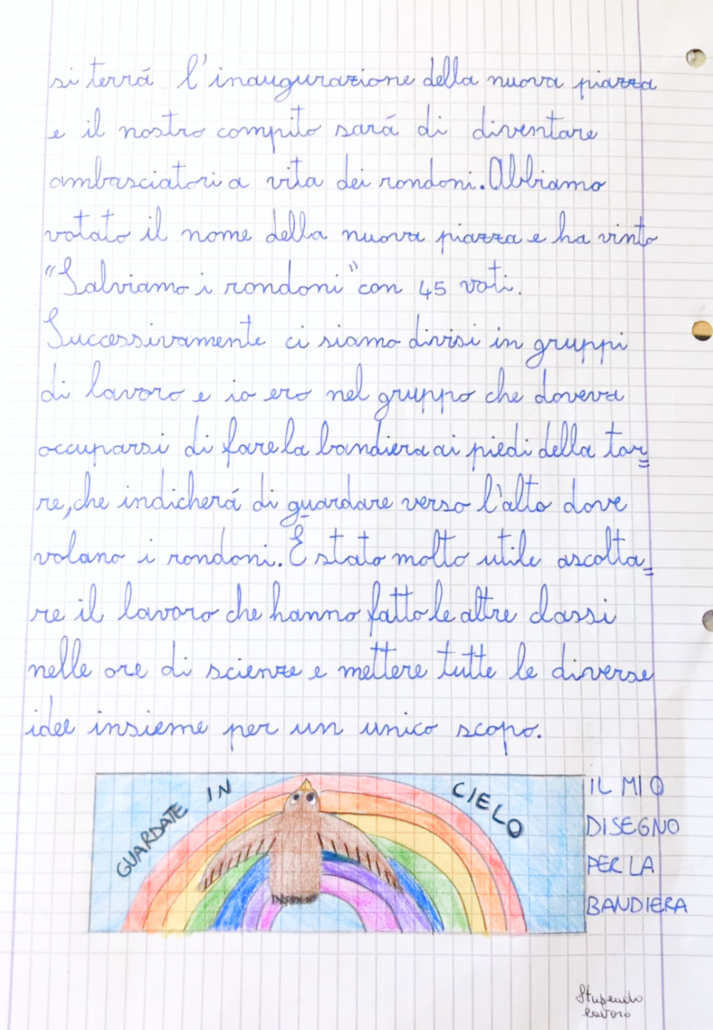 si terrá l'inaugurazione della nuova piazza
e il nostro compito sará di diventare
ambasciatori a vita dei rondoni. Abbiamo
votato il nome della nuova piazza e ha vinto
"Salviamo i rondoni" con 45 voti.
Successivamente ci siamo divisi in gruppi
di lavoro e io ero nel gruppo che doveva
occuparsi di fare la bandiera ai piedi della tor=
re, che indicherá di guardare verso l'alto dove
volano i rondoni. È stato molto utile ascolta=
re il lavoro che hanno fatto le altre classi
nelle ore di scienze e mettere tutte le diverse
idee insieme per un unico scopo.
GUARDATE IN CIELO
IL MIO
DISEGNO
PER LA
BANDIERA
Stupendo
lavoro